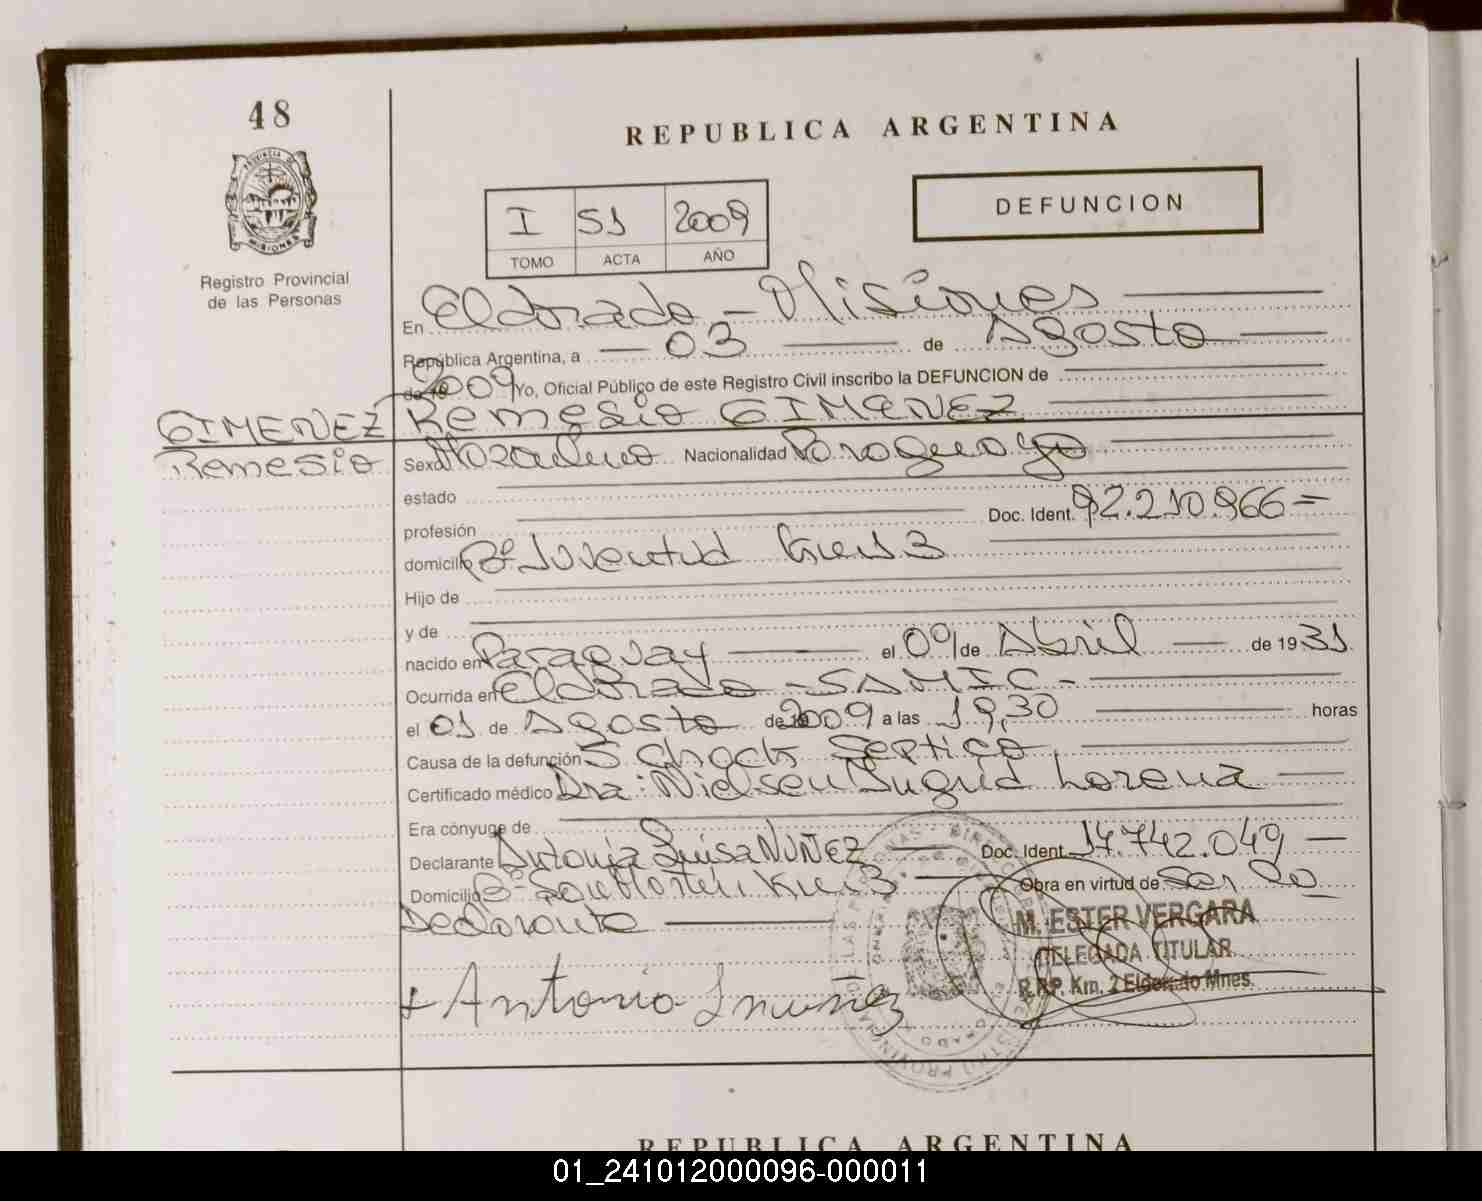 48
REPUBLICA ARGENTINA
PROVINCIA DE
MISIONES
Registro Provincial
de las Personas
I 51 2009
TOMO ACTA AÑO
DEFUNCION
En Eldorado - Misiones
República Argentina, a 03 de Agosto
de 2009 Yo, Oficial Público de este Registro Civil inscribo la DEFUNCION de
GIMENEZ Remesio GIMENEZ
Remesio
Sexo Masculino Nacionalidad Paraguaya
estado
profesión Doc. Ident. 92.210.966=
domicilio Bº Juventud Km 3
Hijo de
y de
nacido en Paraguay el 09 de Abril de 1931
Ocurrida en Eldorado - SAMIC -
el 01 de Agosto de 2009 a las 19,30 horas
Causa de la defunción Shock Septico
Certificado médico Dra: Nielsen Ingrid Lorena
Era cónyuge de
Declarante Antonia Luisa NUÑEZ Doc. Ident. 14.742.049
Domicilio Bº San Martin Km 3 Obra en virtud de Ser La
Declarante
M. ESTER VERGARA
DELEGADA TITULAR
R.P.P. Km. 2 Eldorado Mnes.
+ Antonia L nuñez
REPUBLICA ARGENTINA
01_241012000096-000011